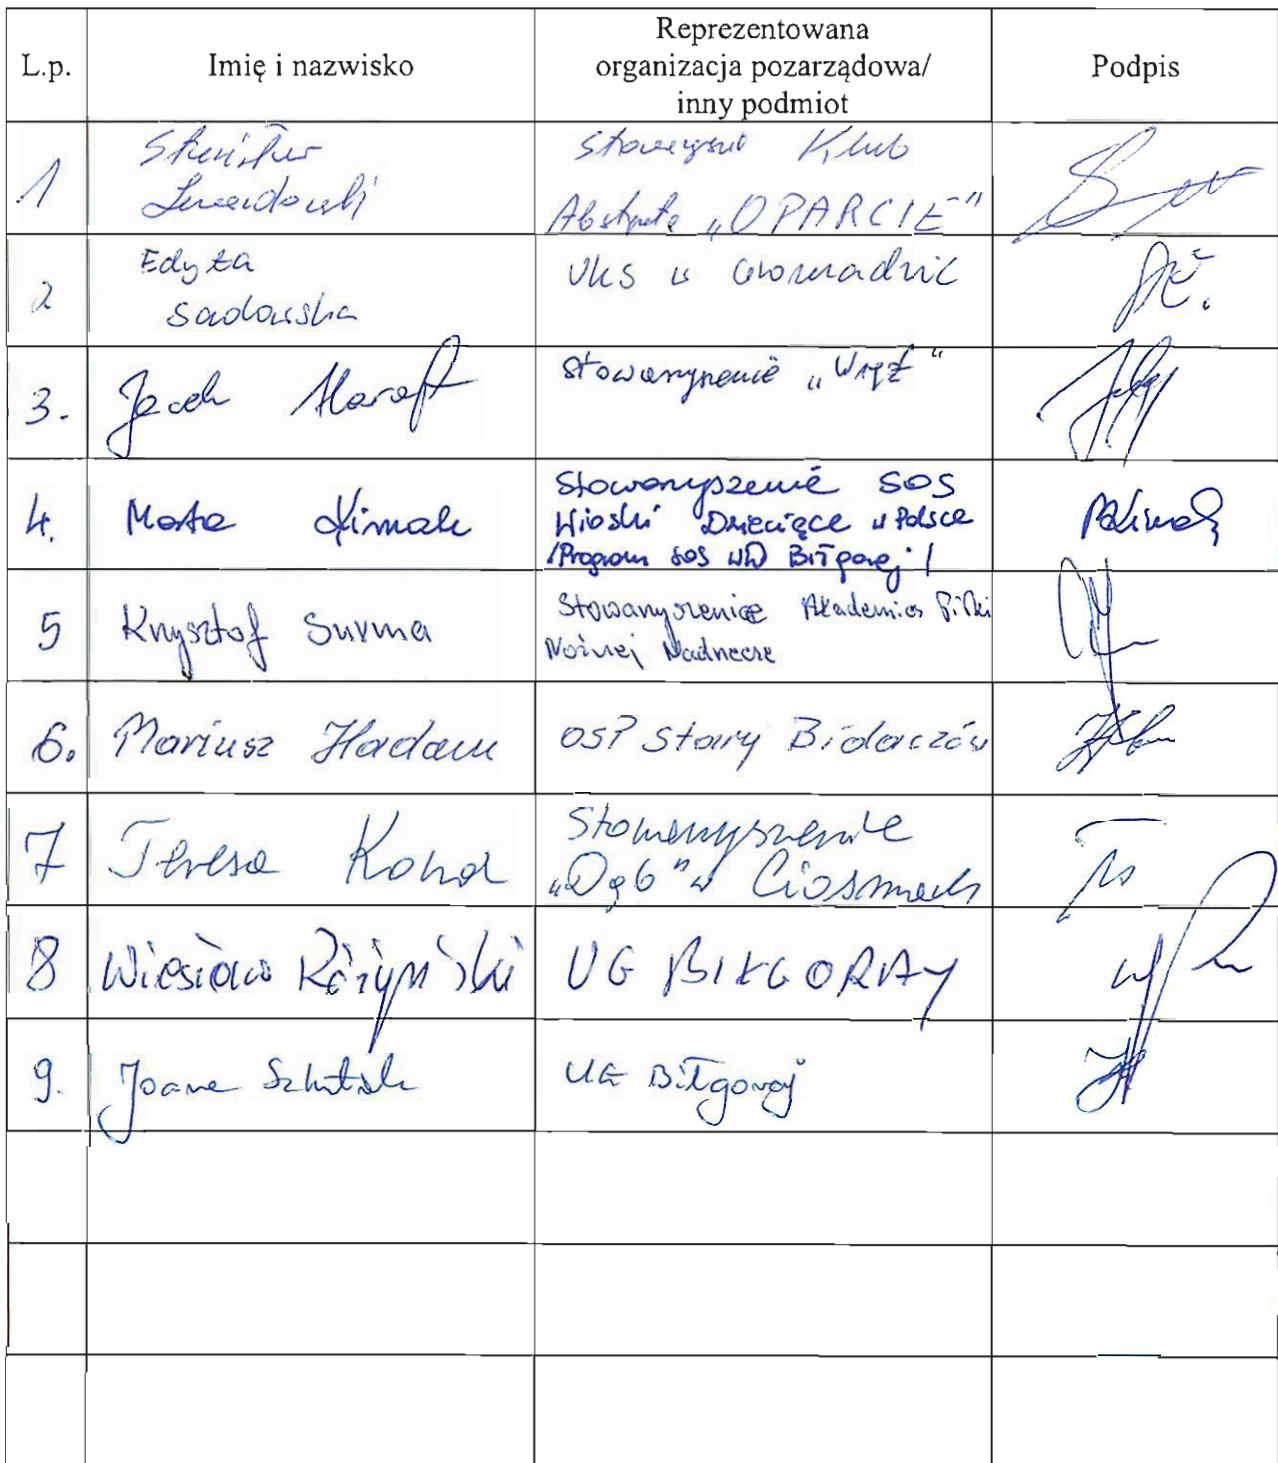 L.p.
Imię i nazwisko
Reprezentowana
organizacja pozarządowa/
inny podmiot
Podpis
1
Klub
"OPARCIE"
2
Edyta
Sadowska
UKS w
3.
Jacek
Stowarzyszenie „Więź“
4.
Marta Kimak
Stowarzyszenie SOS
Wioski Dziecięce w Polsce
/Program SOS WD Biłgoraj/
5
Krzysztof Surma
Stowarzyszenie Akademia Piłki
Nożnej Nadrzecze
6.
Mariusz Hadam
OSP Stary Bidaczów
7
Teresa
Stowarzyszenie
„Dąb" w Ciosmach
8
Wiesław Różyński
UG BIŁGORAJ
9.
UG Biłgoraj